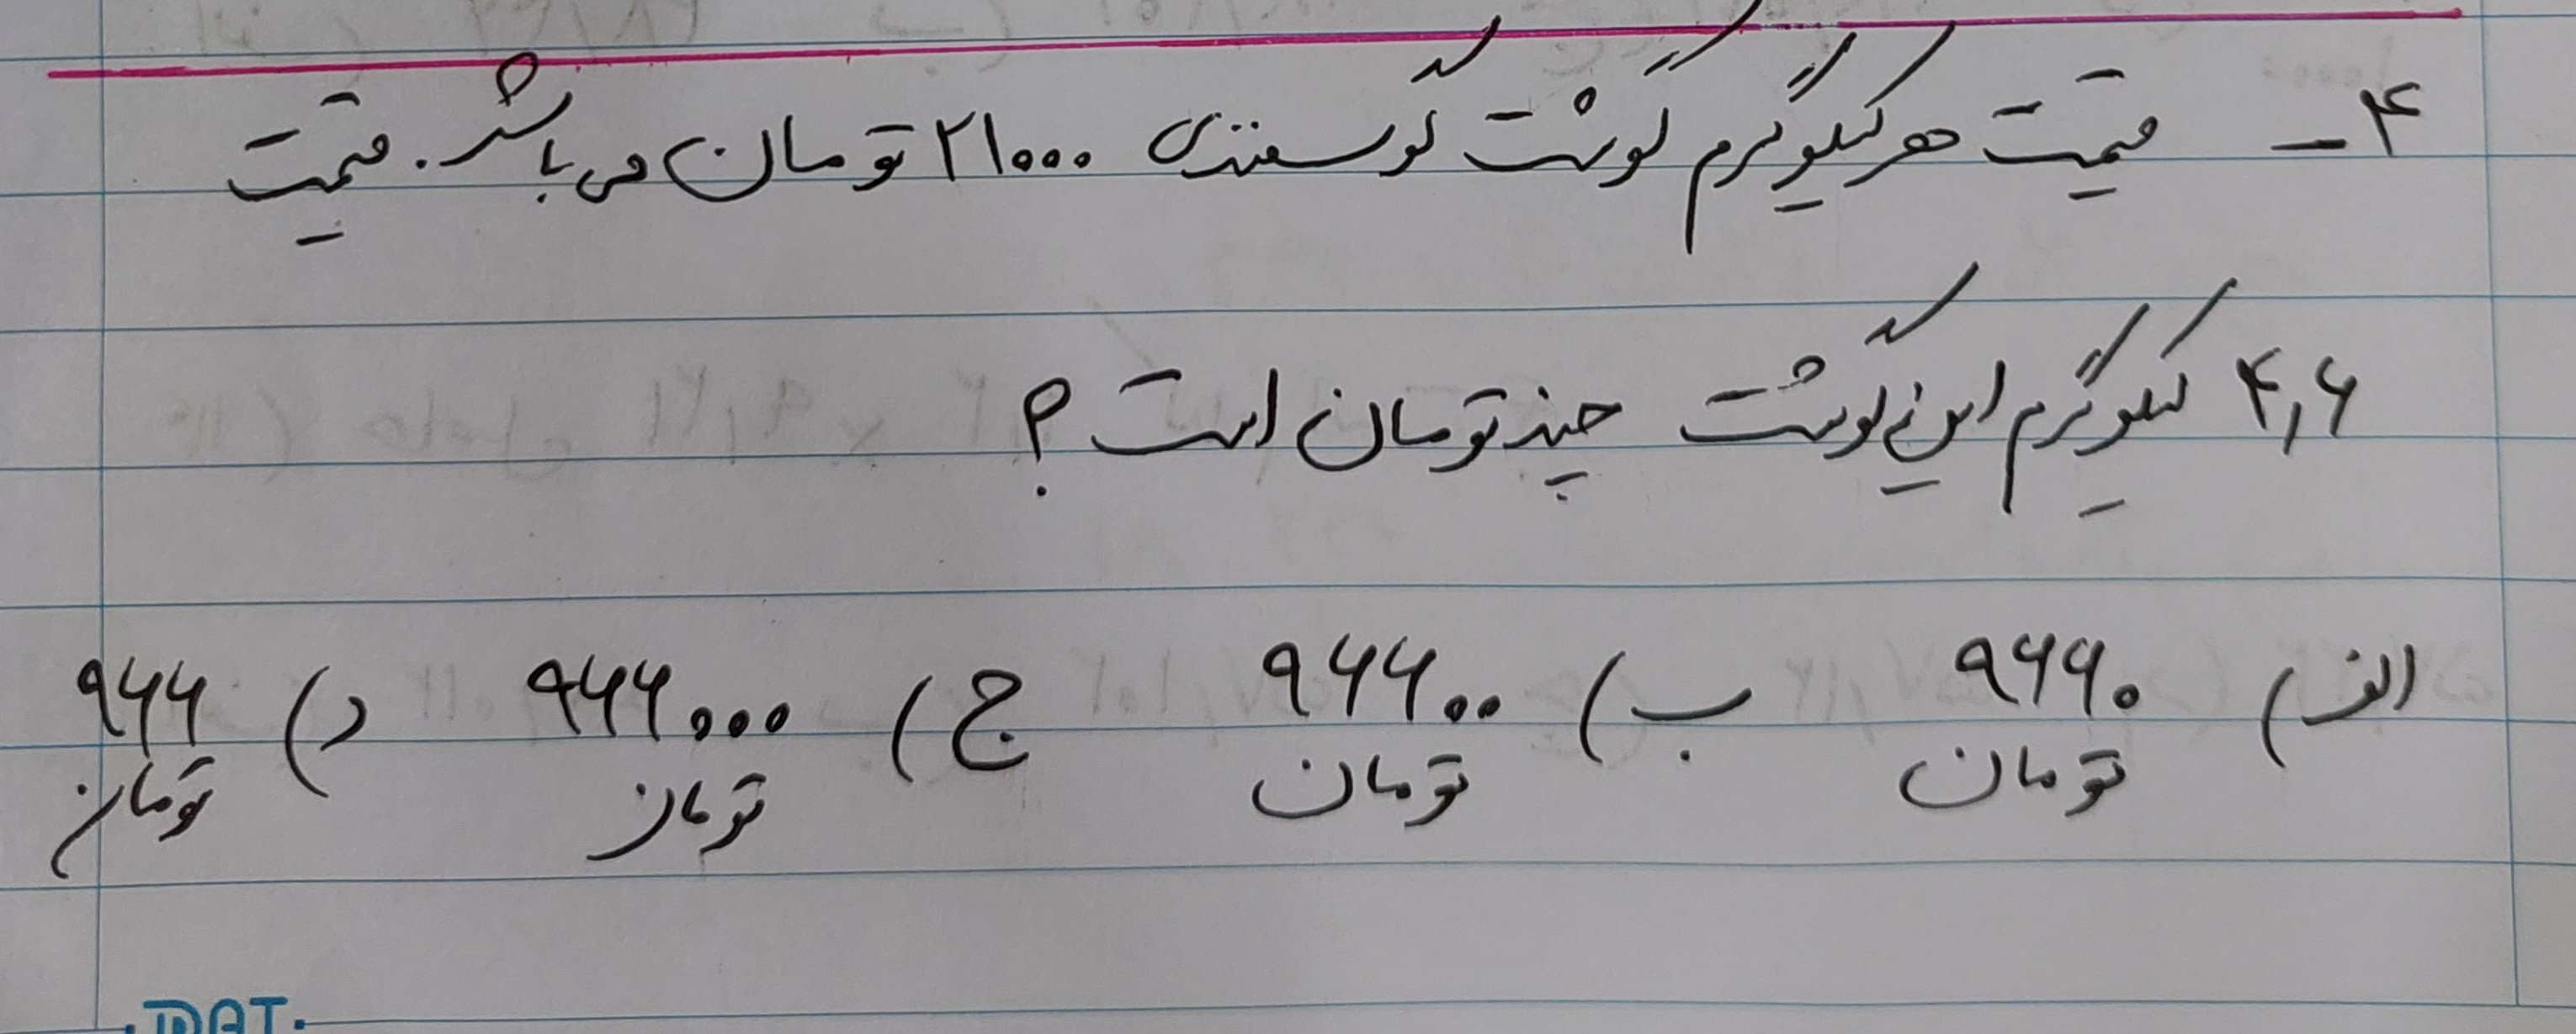 ۴- قیمت هر کیلوگرم گوشت گوسفندی ۲۱۰۰۰ تومان می باشد. قیمت
۴,۶ کیلوگرم این گوشت چند تومان است؟
الف) ۹۶۶۰ تومان ب) ۹۶۶۰۰ تومان ج) ۹۶۶۰۰۰ تومان د) ۹۶۶ تومان